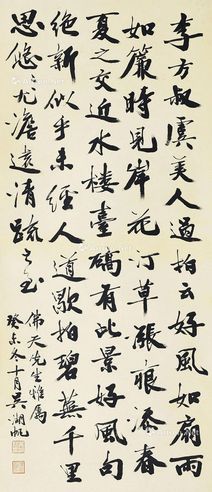 李方叔虞美人過拍云好風如扇雨
如簾時見岸花汀草漲痕添春
夏之交近水樓臺碻有此景好風句
絕新似乎未經人道歇拍碧蕪千里
思悠尤澹遠清疏之至
佛天先生雅屬
癸未冬十月吳湖帆